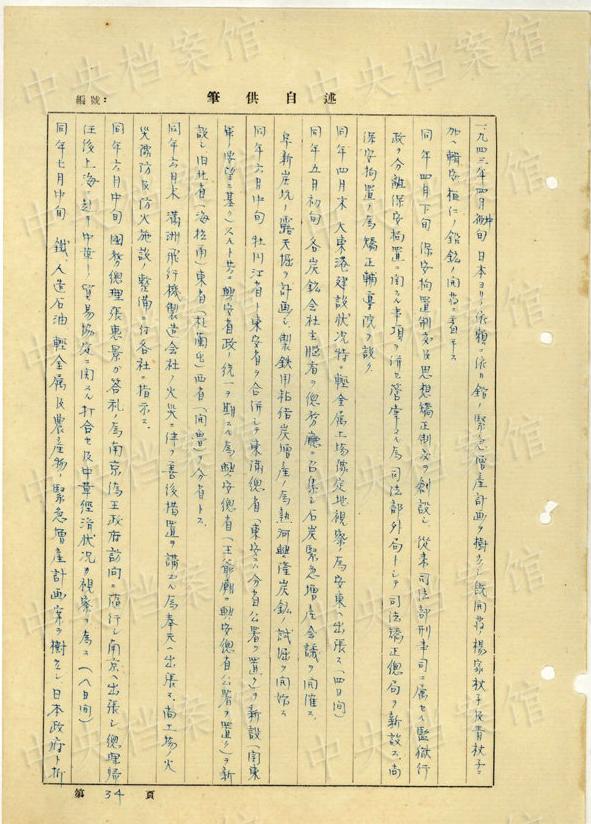 中央档案馆
述自供筆
編號：
一九四三年四月初中旬 日本ヨリノ依頼ニ依リ鉛ノ緊急増産計画ヲ樹テ既開発ノ楊家杖子及青杖子ニ
加ヘ輯安桓仁ノ鉛鉱ノ開発ニ着手ス
同年四月下旬 保安拘置制度及思想矯正制度ヲ創設シ 従来司法部刑事司ニ属セル監獄行
政ヲ分離保安拘置ニ関スル事項ヲ併セ管掌スル為司法部外局トシテ司法矯正総局ヲ新設ス、尚
保安拘置ノ為矯正輔導院ヲ設ク
同年四月末 大東港建設状況特ニ軽金属工場予定地視察ノ為安東ヘ出張ス（四日間）
同年五月初旬 各炭鉱会社主脳者ヲ総務廳ニ召集シ石炭緊急増産会議ヲ開催ス
阜新炭坑ノ露天掘ヲ計画シ、製鉄用粘結炭増産ノ為熱河興隆炭鉱ノ試掘ヲ開始ス
同年六月中旬 牡丹江省ト東安省ヲ合併シテ東満総省（東安ニハ分省公署ヲ置ク）ヲ新設（関東
軍ノ要望ニ基ク）スルト共ニ興安省政ノ統一ヲ期スル為興安総省（王爺廟ニ興安総省公署ヲ置ク）ヲ新
設シ旧北省（海拉爾）東省（札蘭屯）西省（開魯）ヲ分省トス
同年六月末 満洲飛行機製造会社ノ火災ニ伴フ善後措置ヲ講スル為奉天ヘ出張ス、尚工場ノ火
災予防及防火施設ノ整備ニ付各社ニ指示ス
同年六月中旬 國務総理張恵景ガ答礼ノ為南京偽汪政府訪問ニ随行シ南京ヘ出張シ総理帰
任後上海ニ赴キ中華トノ貿易協定ニ関スル打合セ及中華経済状況ヲ視察ヲ為ス（八日間）
同年七月中旬 鉄、人造石油、軽金属及農産物ノ緊急増産計画案ヲ樹テ、日本政府ト折
第34頁